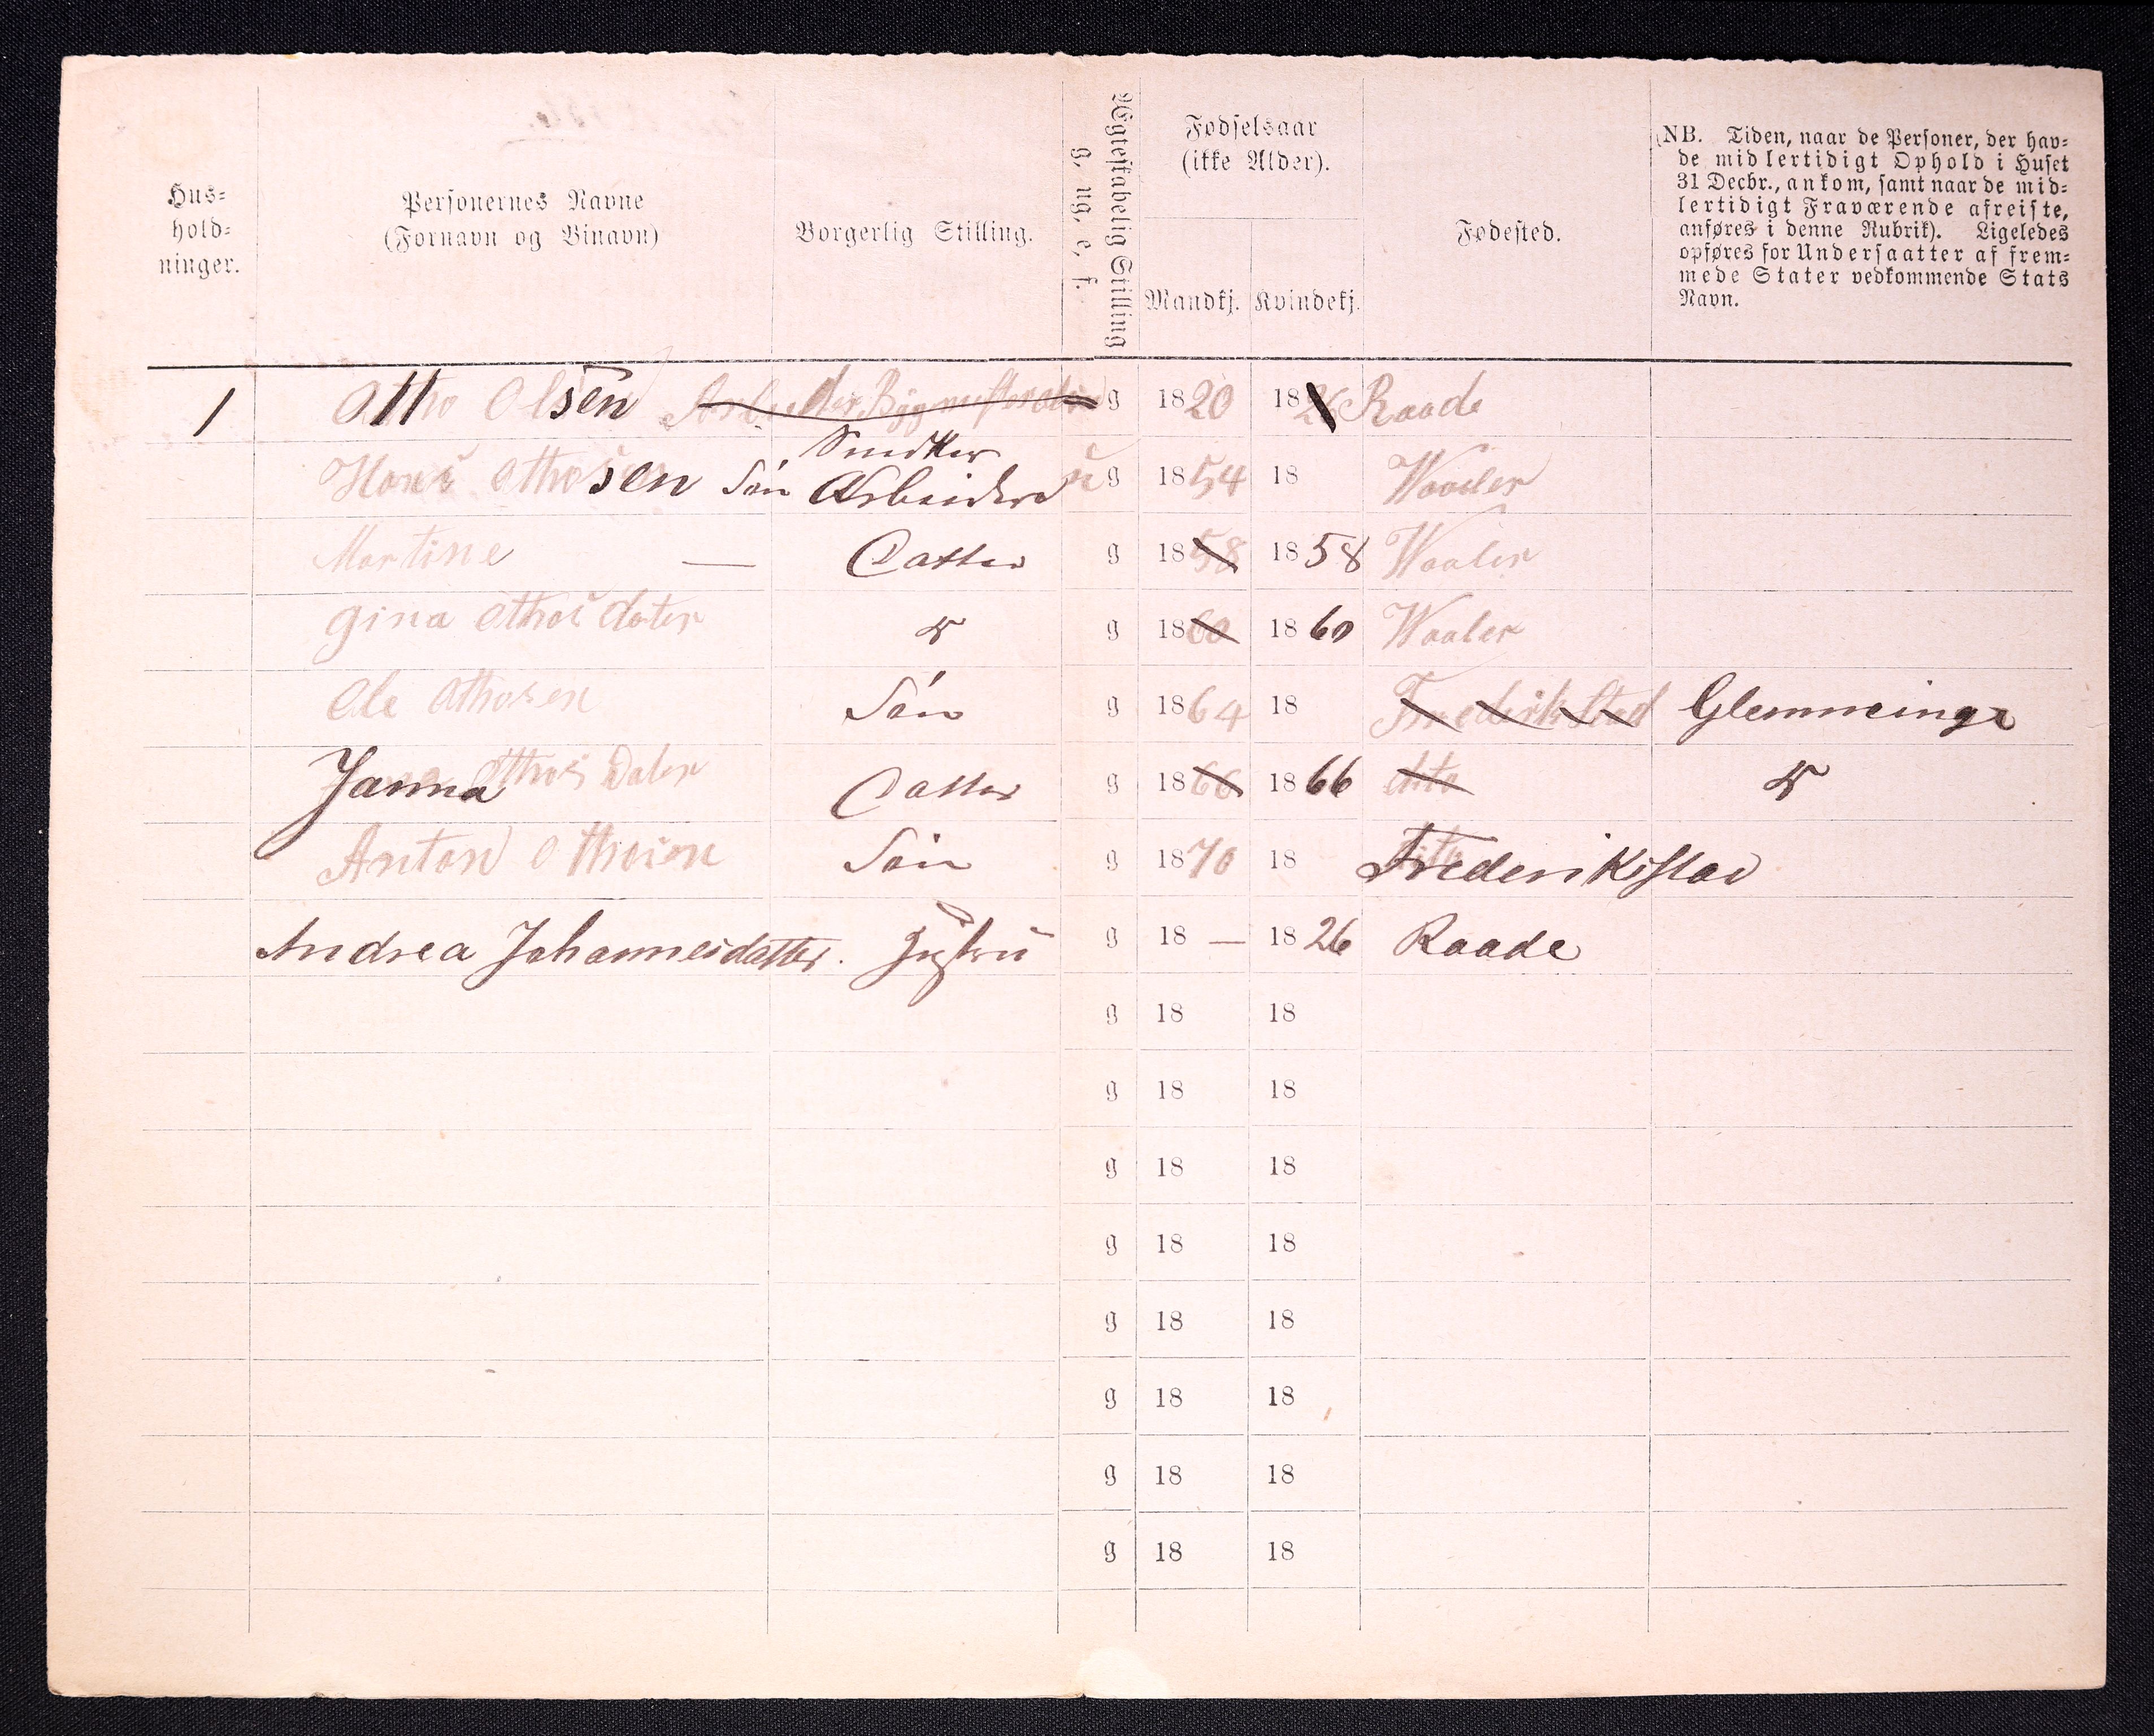 Hus-
hold-
ninger.
Personernes Navne
(Fornavn og Binavn)
Borgerlig Stilling.
Ægteskabelig Stilling
g, ug, e, f.
Fødselsaar
(ikke Alder).
Mandkj. Kvindekj.
Fødested.
(NB. Tiden, naar de Personer, der hav-
de midlertidigt Ophold i Huset
31 Decbr., ankom, samt naar de mid-
lertidigt Fraværende afreiste,
anføres i denne Rubrik). Ligeledes
opføres for Undersaatter af frem-
mede Stater vedkommende Stats
Navn.
1 Otto Olsen g 1820 1826 Raade
Snedker
Hans Othosen Søn Arbeider ug 1854 18 Waaler
Martine — Datter g 1858 1858 Waaler
Gina Othos dater g 1860 1860 Waaler
Ole Othosen Søn g 1864 18 Fredrikstad Glemminge
Janna Othos Dater Datter g 1866 1866 dito
Anton Othosen Søn g 1870 18 Frederikstad
Andrea Johannesdatter. g 18 — 1826 Raade
g 18 18
g 18 18
g 18 18
g 18 18
g 18 18
g 18 18
g 18 18
g 18 18